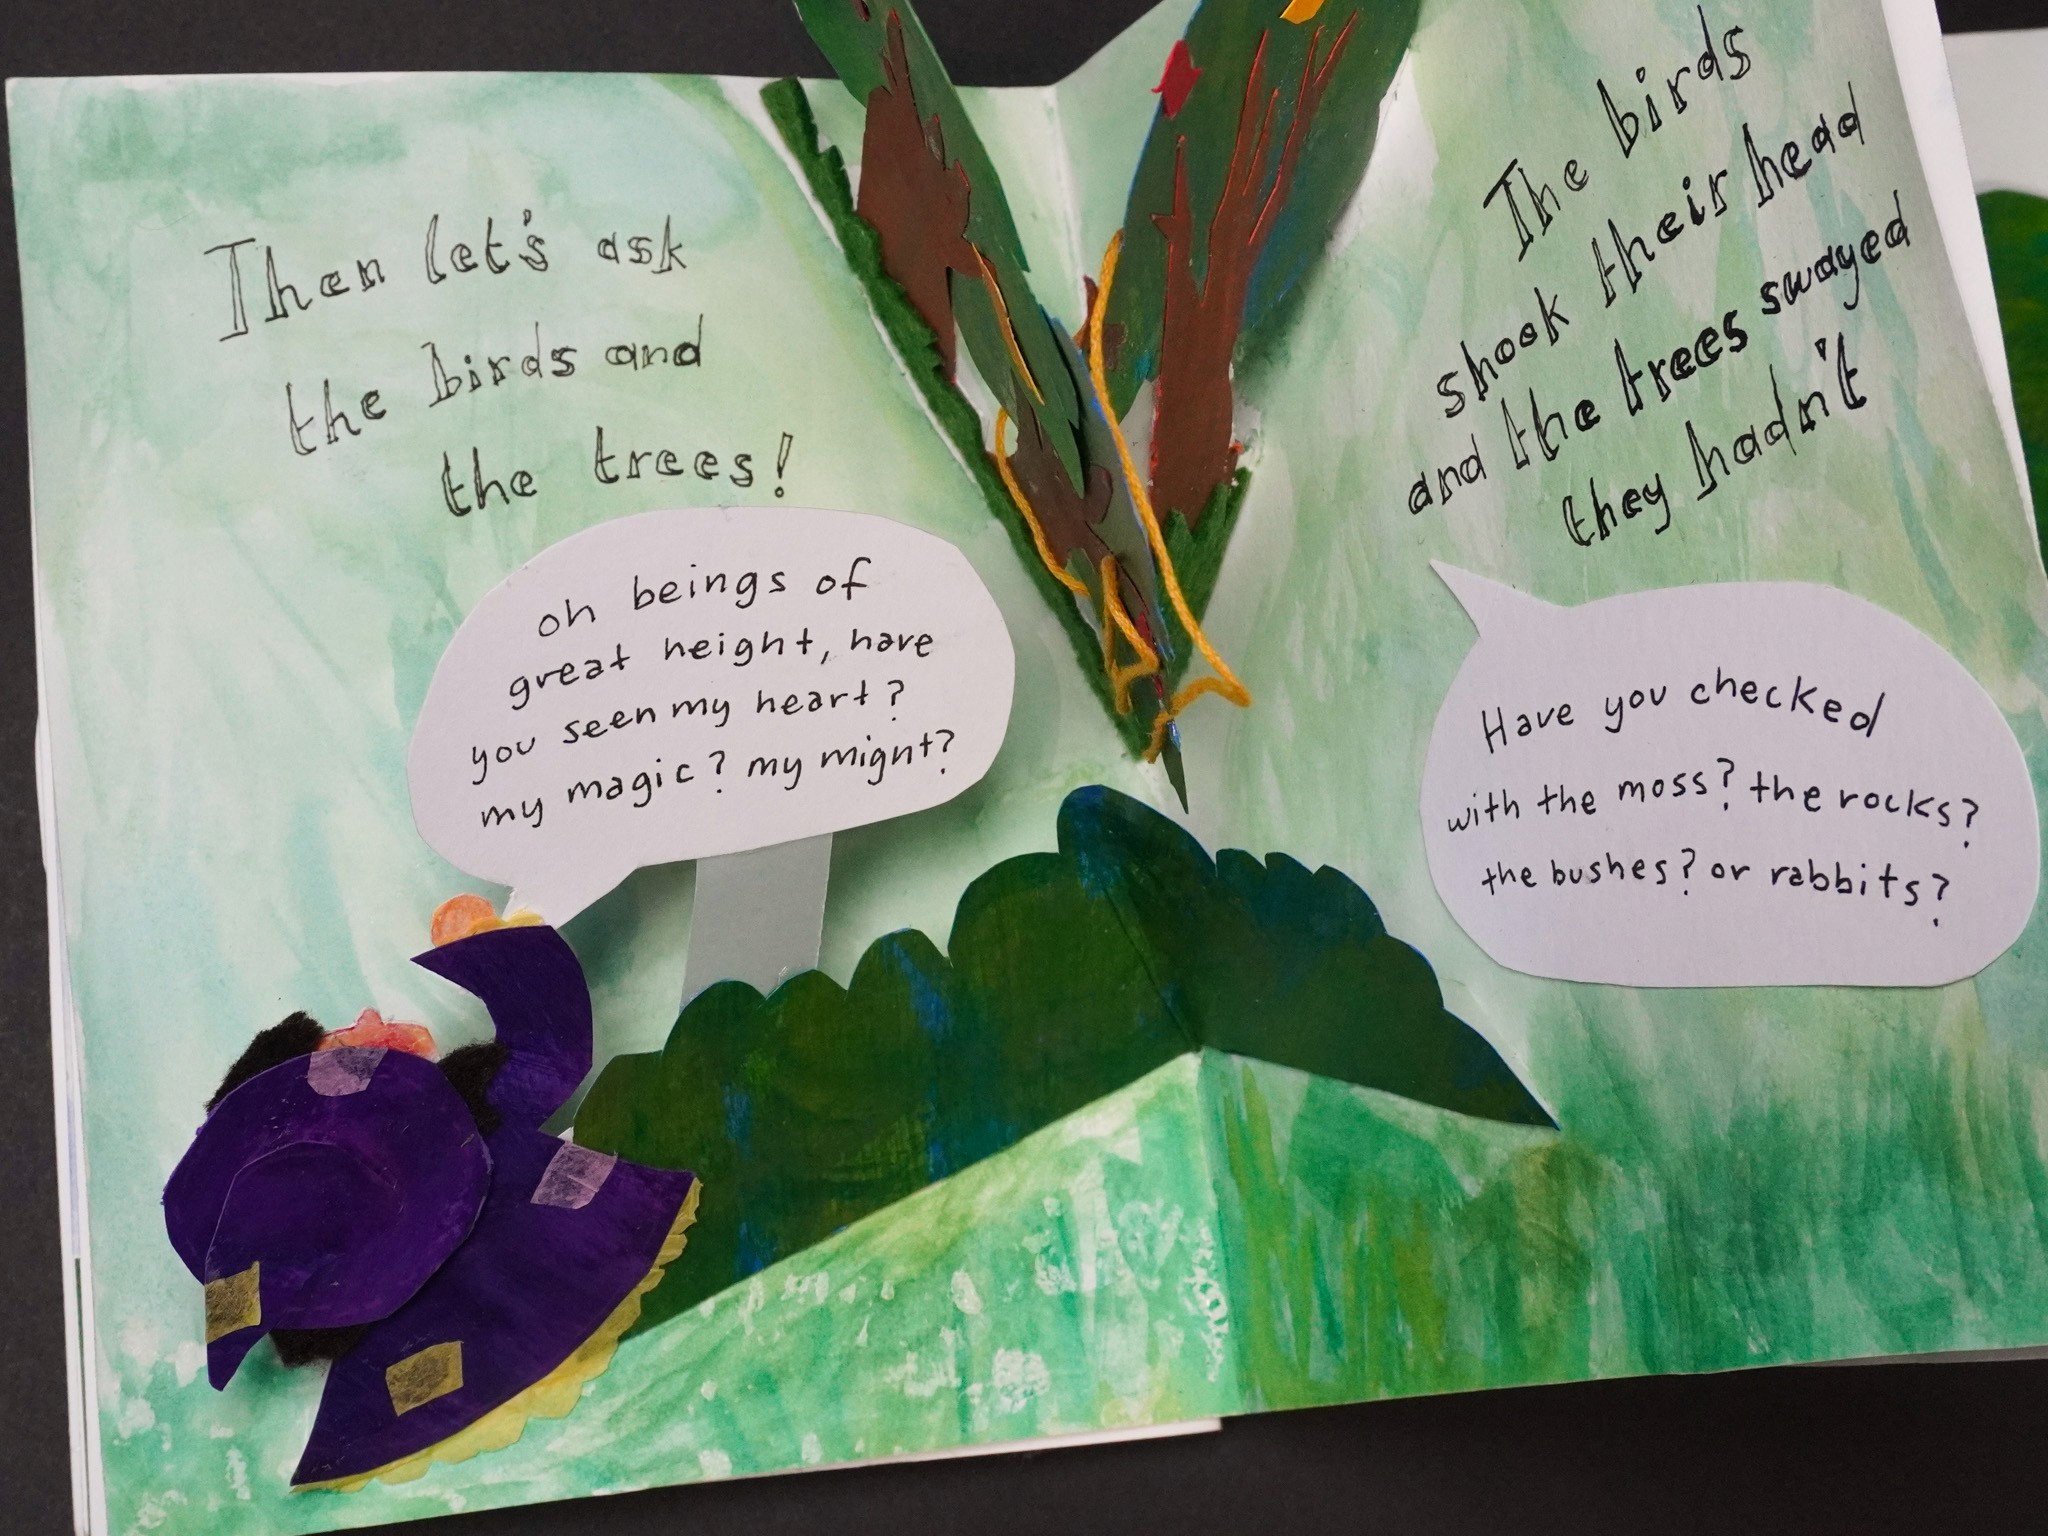 Then let's ask
the birds and
the trees!
oh beings of
great height, have
you seen my heart?
my magic? my might?
The birds
shook their head
and the trees swayed
they hadn't
Have you checked
with the moss? the rocks?
the bushes? or rabbits?